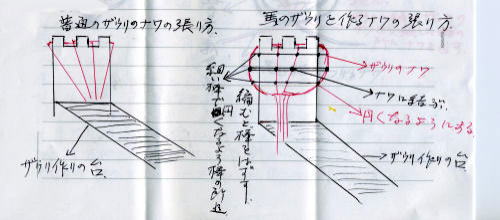 普通のザウリのナワの張り方.
馬のザウリを作るナワの張り方.
ザウリのナワ
ナワにまたぶ.
円くなるようにする.
編むと棒をはずす.
細い棒で円く
なるよう棒の
ザウリ作りの台.
ザウリ作りの台.